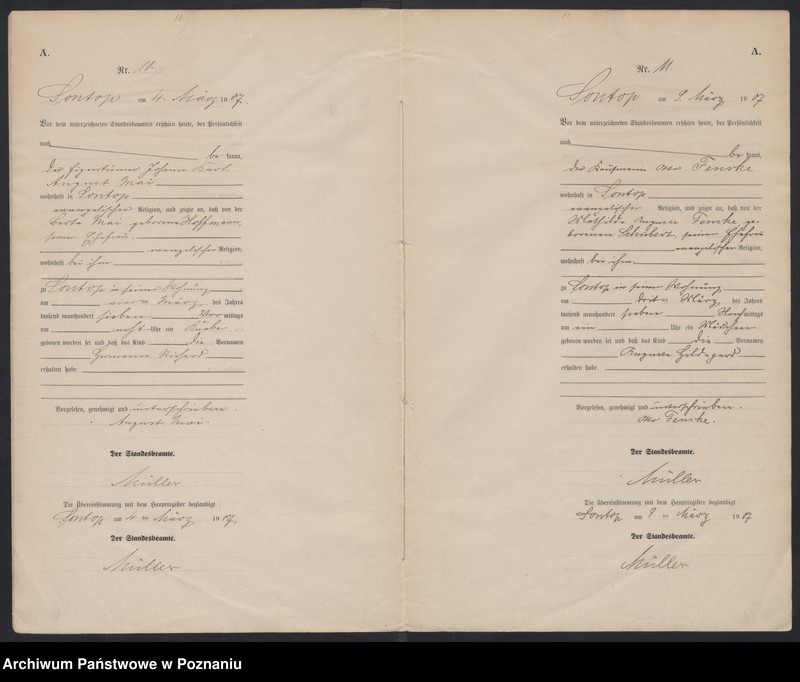 A.
Nr. 10.
Sontop am 4. März 1907.
Vor dem unterzeichneten Standesbeamten erschien heute, der Persönlichkeit
nach
be kannt,
der Eigentümer Johann Karl
August Mai
wohnhaft in Sontop
evangelischer Religion, und zeigte an, daß von der
Berta Mai geborenen Hoffmann,
seiner Ehefrau
evangelischer Religion,
wohnhaft bei ihm
zu Sontop in seiner Wohnung
am vierten März des Jahres
tausend neunhundert sieben Vormittags
um acht Uhr ein Knabe
geboren worden sei und daß das Kind die Vornamen
Hermann Richard
erhalten habe.
Vorgelesen, genehmigt und unterschrieben.
August Mai.
Der Standesbeamte.
Müller
Die Übereinstimmung mit dem Hauptregister beglaubigt
Sontop am 4 ten März 1907
Der Standesbeamte.
Müller
A.
Nr. 11
Sontop am 9. März 1907
Vor dem unterzeichneten Standesbeamten erschien heute, der Persönlichkeit
nach
be kannt,
der Kaufmann Otto Fenske
wohnhaft in Sontop
evangelischer Religion, und zeigte an, daß von der
Mathilde Auguste Fenske ge-
borenen Schubert, seiner Ehefrau
evangelischer Religion,
wohnhaft bei ihm
zu Sontop in seiner Wohnung
am dritten März des Jahres
tausend neunhundert sieben Nachmittags
um ein Uhr ein Mädchen
geboren worden sei und daß das Kind die Vornamen
Auguste Hildegard
erhalten habe.
Vorgelesen, genehmigt und unterschrieben.
Otto Fenske.
Der Standesbeamte.
Müller
Die Übereinstimmung mit dem Hauptregister beglaubigt
Sontop am 9 ten März 1907
Der Standesbeamte.
Müller
Archiwum Państwowe w Poznaniu